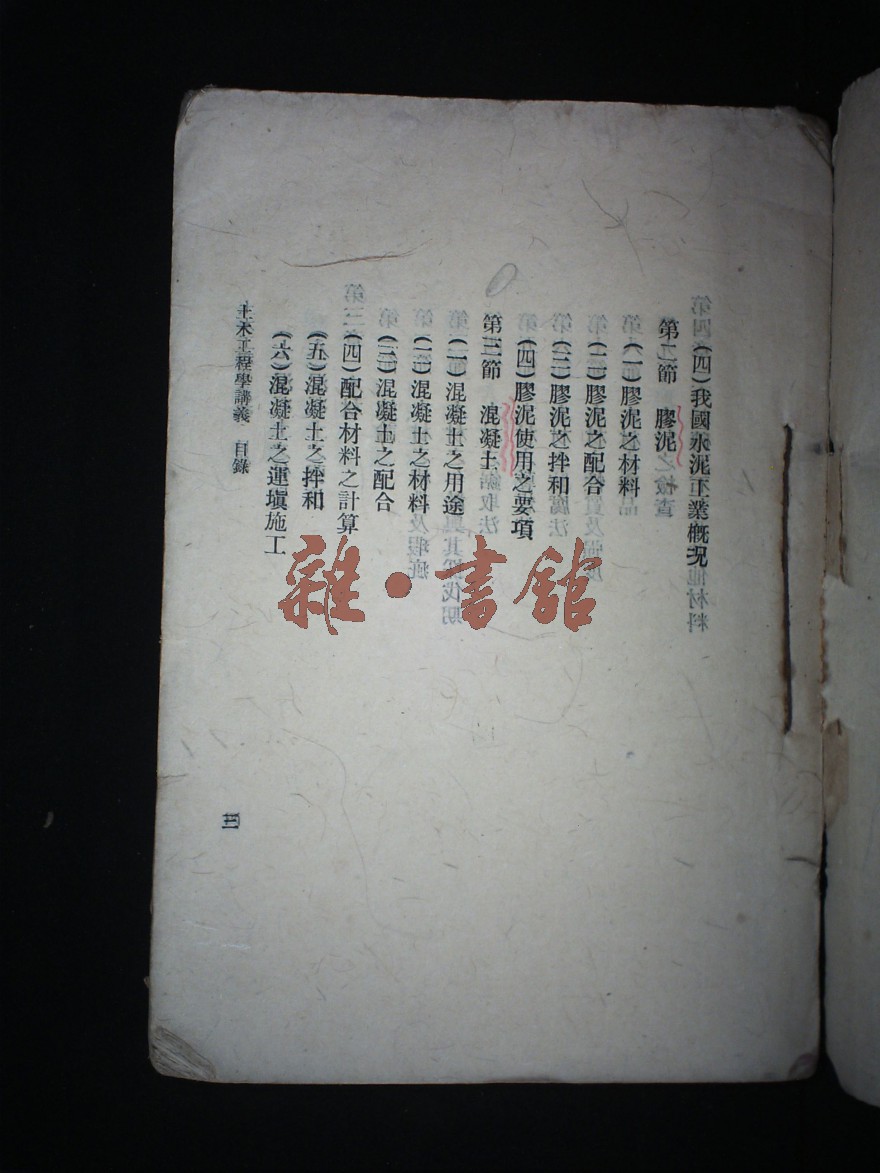 (四)我國水泥工業概況
第二節 膠泥
(一)膠泥之材料
(二)膠泥之配合
(三)膠泥之拌和
(四)膠泥使用之要項
第三節 混凝土
(一)混凝土之用途
(二)混凝土之材料
(三)混凝土之配合
(四)配合材料之計算
(五)混凝土之拌和
(六)混凝土之運塡施工
土木工程學講義 目錄
三
雜·書館